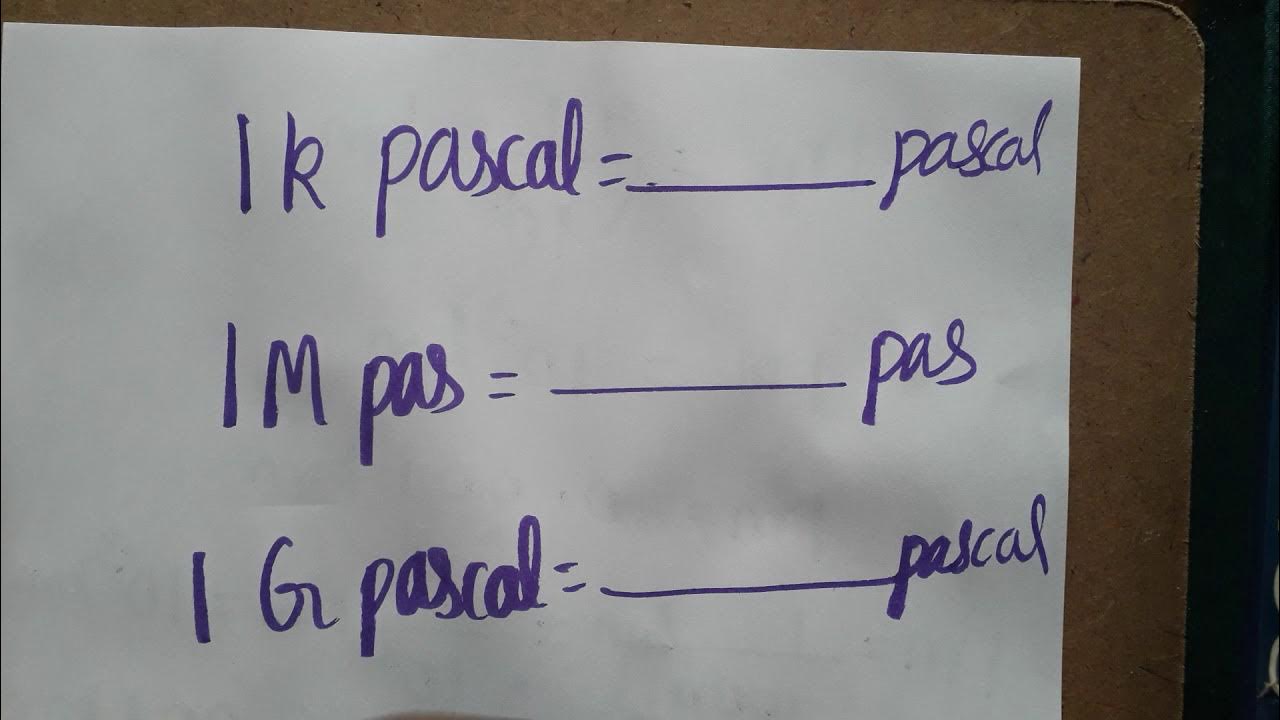 1 k pascal = ______ pascal
1 M pas = ______ pas
1 G pascal = ______ pascal